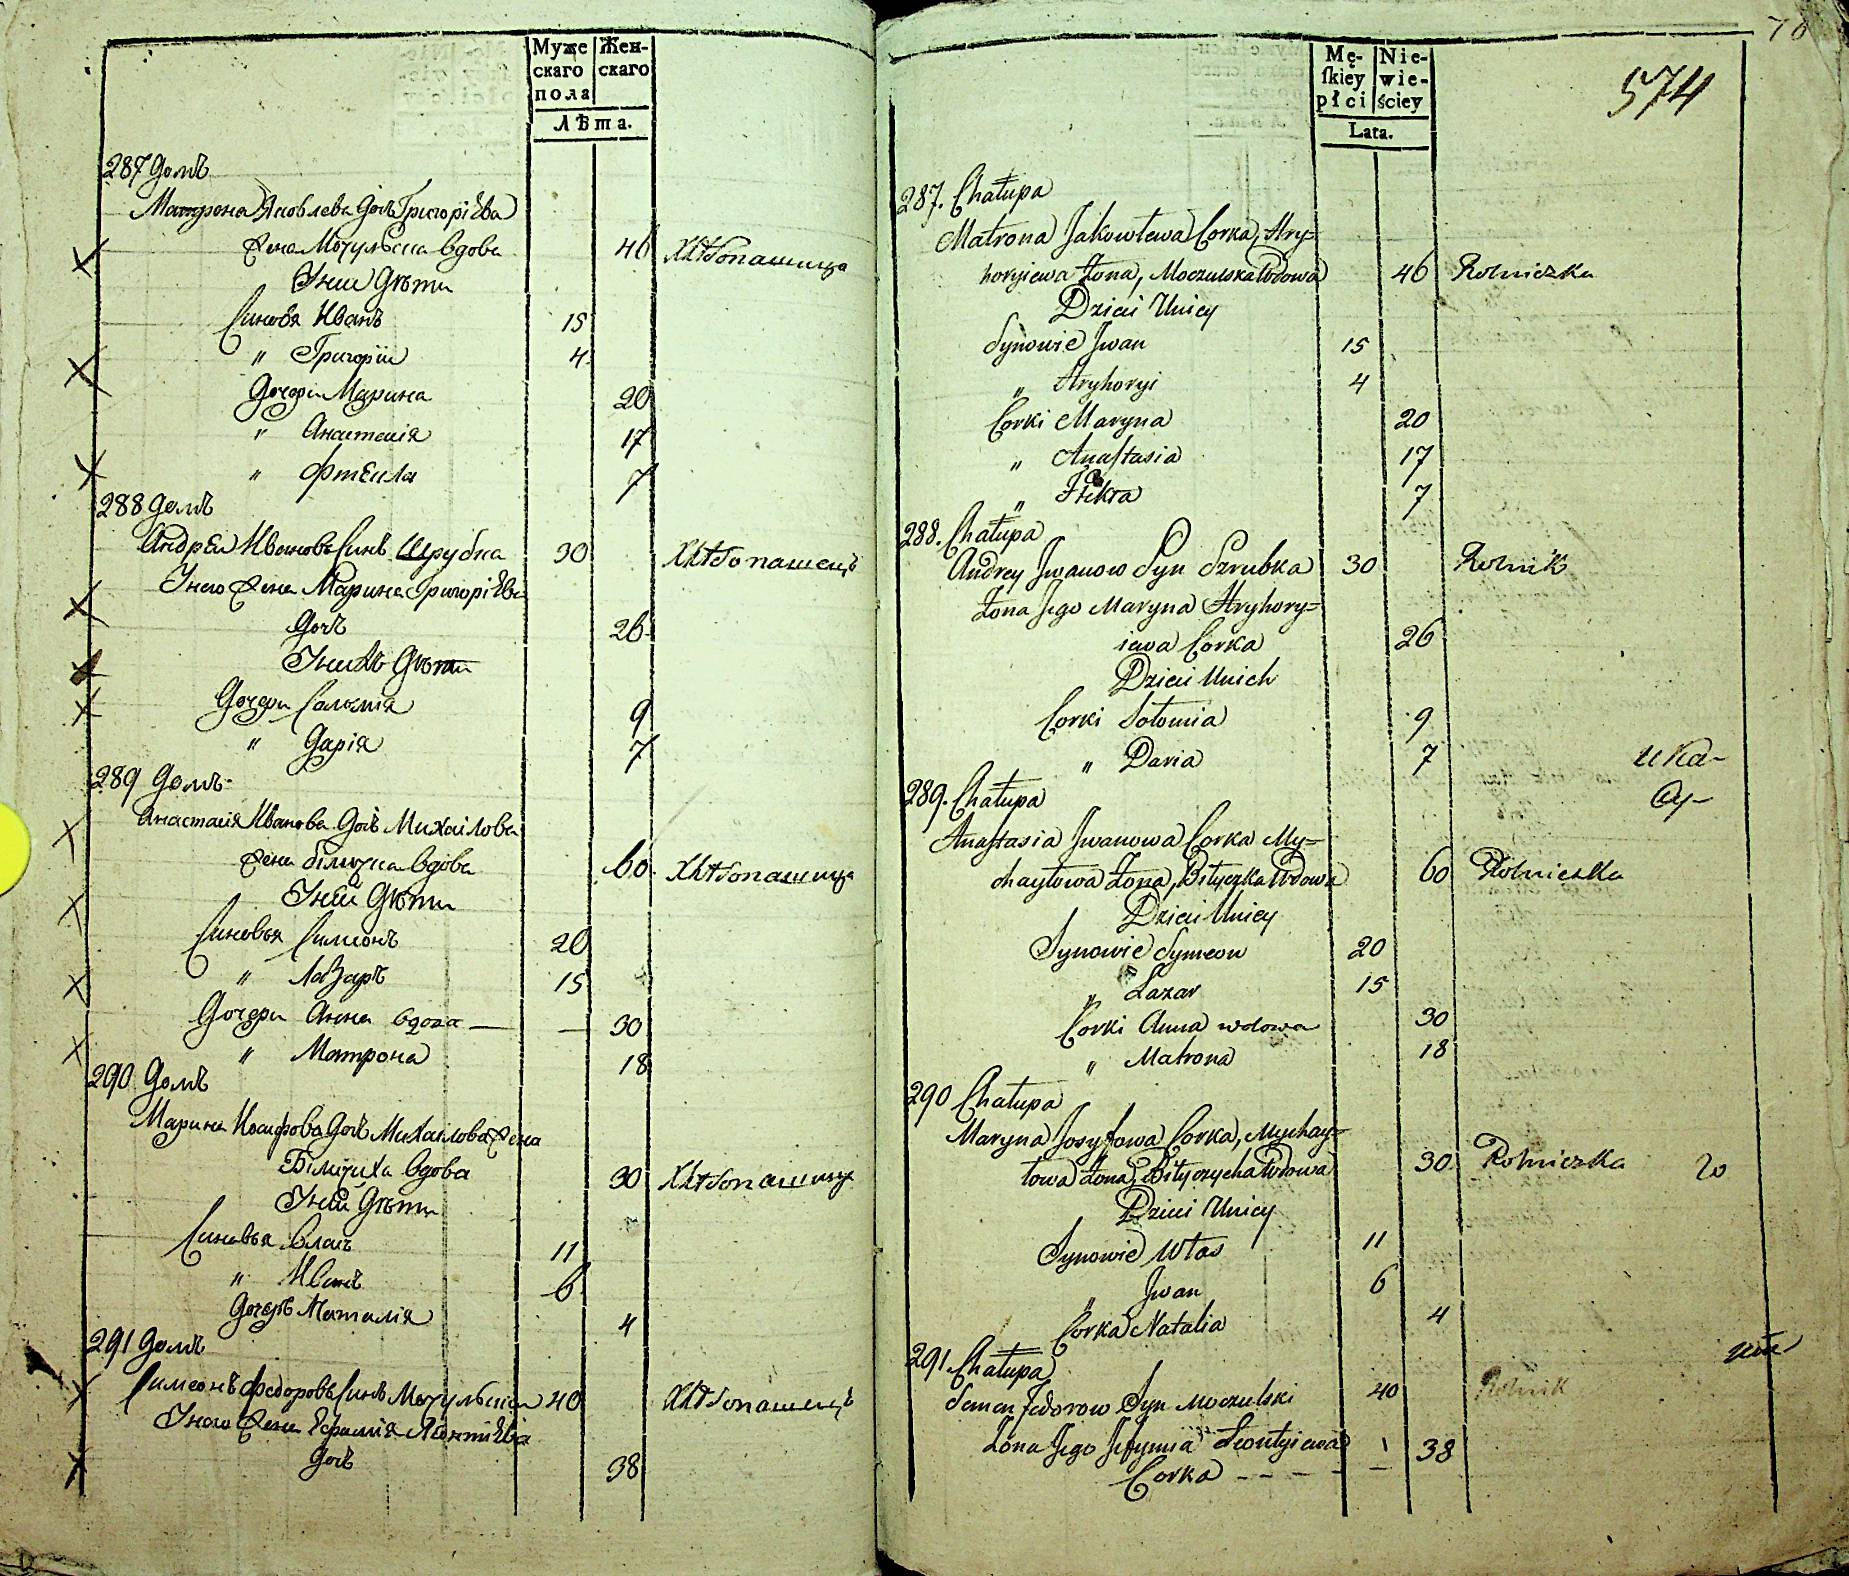 Муже Жен-
скаго скаго
пола
Лѣта.
287 домъ
Матрона Яковлева дочь Григоріѣва
жена Мочулѣска вдова 46 Хлѣбопашица
У неи дѣти
Синовя Иванъ 15
" Григорiи 4
Дочери Марина 20
" Анастасія 17
" Фтекла 7
288 домъ
Андрѣи Ивановъ синъ Шрубка 30 Хлѣбопашецъ
У него жена Марина Григоріѣва
дочь 26
У нихъ дѣти
Дочери Саломія 9
" Дарія 7
289 домъ
Анастасія Иванова дочь Михаілова
жена Біличка вдова 60 Хлѣбопашица
У неи дѣти
Синовья Симеонъ 20
" Лазаръ 15
Дочери Анна вдова — — 30
" Матрона 18
290 домъ
Марина Иосифова дочь Михаілова жена
Білічиха вдова 30 Хлѣбопашица
У неи дѣти
Синовья Власъ 11
" Иванъ 6
Дочерь Наталія 4
291 домъ
Симеонъ Федоровъ синъ Мочулѣски 40 Хлѣбопашецъ
У него жена Ефимія Леонтіѣва
дочь 38
76
574
Mę- Nie-
ſkiey wie-
płci ściey
Lata.
287. Chałupa
Matrona Jakowlewa Corka, Hry=
horyiewa Żona, Moczulska Wdowa 46 Rolniczka
Dzieci Uniey
Synowie Jwan 15
" Hryhoryi 4
Corki Maryna 20
" Anaſtasia 17
" Ftekla 7
288. Chałupa
Andrey Jwanow Syn Szrubka 30 Rolnik
Żona Jego Maryna Hryhory=
iewa Corka 26
Dzieci Unich
Corki Sołomia 9
" Daria 7
289. Chałupa
Anaſtasia Jwanowa Corka My=
chayłowa Żona, Bityczka Wdowa 60 Rolniczka
Dzieci Uniey
Synowie Symeon 20
" Łazar 15
Corki Anna wdowa 30
" Matrona 18
290 Chałupa
Maryna Josyfowa Corka, Mychay=
łowa Żona, Bityczycha Wdowa 30 Rolniczka 20
Dzieci Uniey
Synowie Włas 11
" Jwan 6
Corka Natalia 4
291. Chałupa
Semen Fedorow Syn Moczulski 40 Rolnik
Żona Jego Jefymia Leontyiewa 38
Corka - - - - -